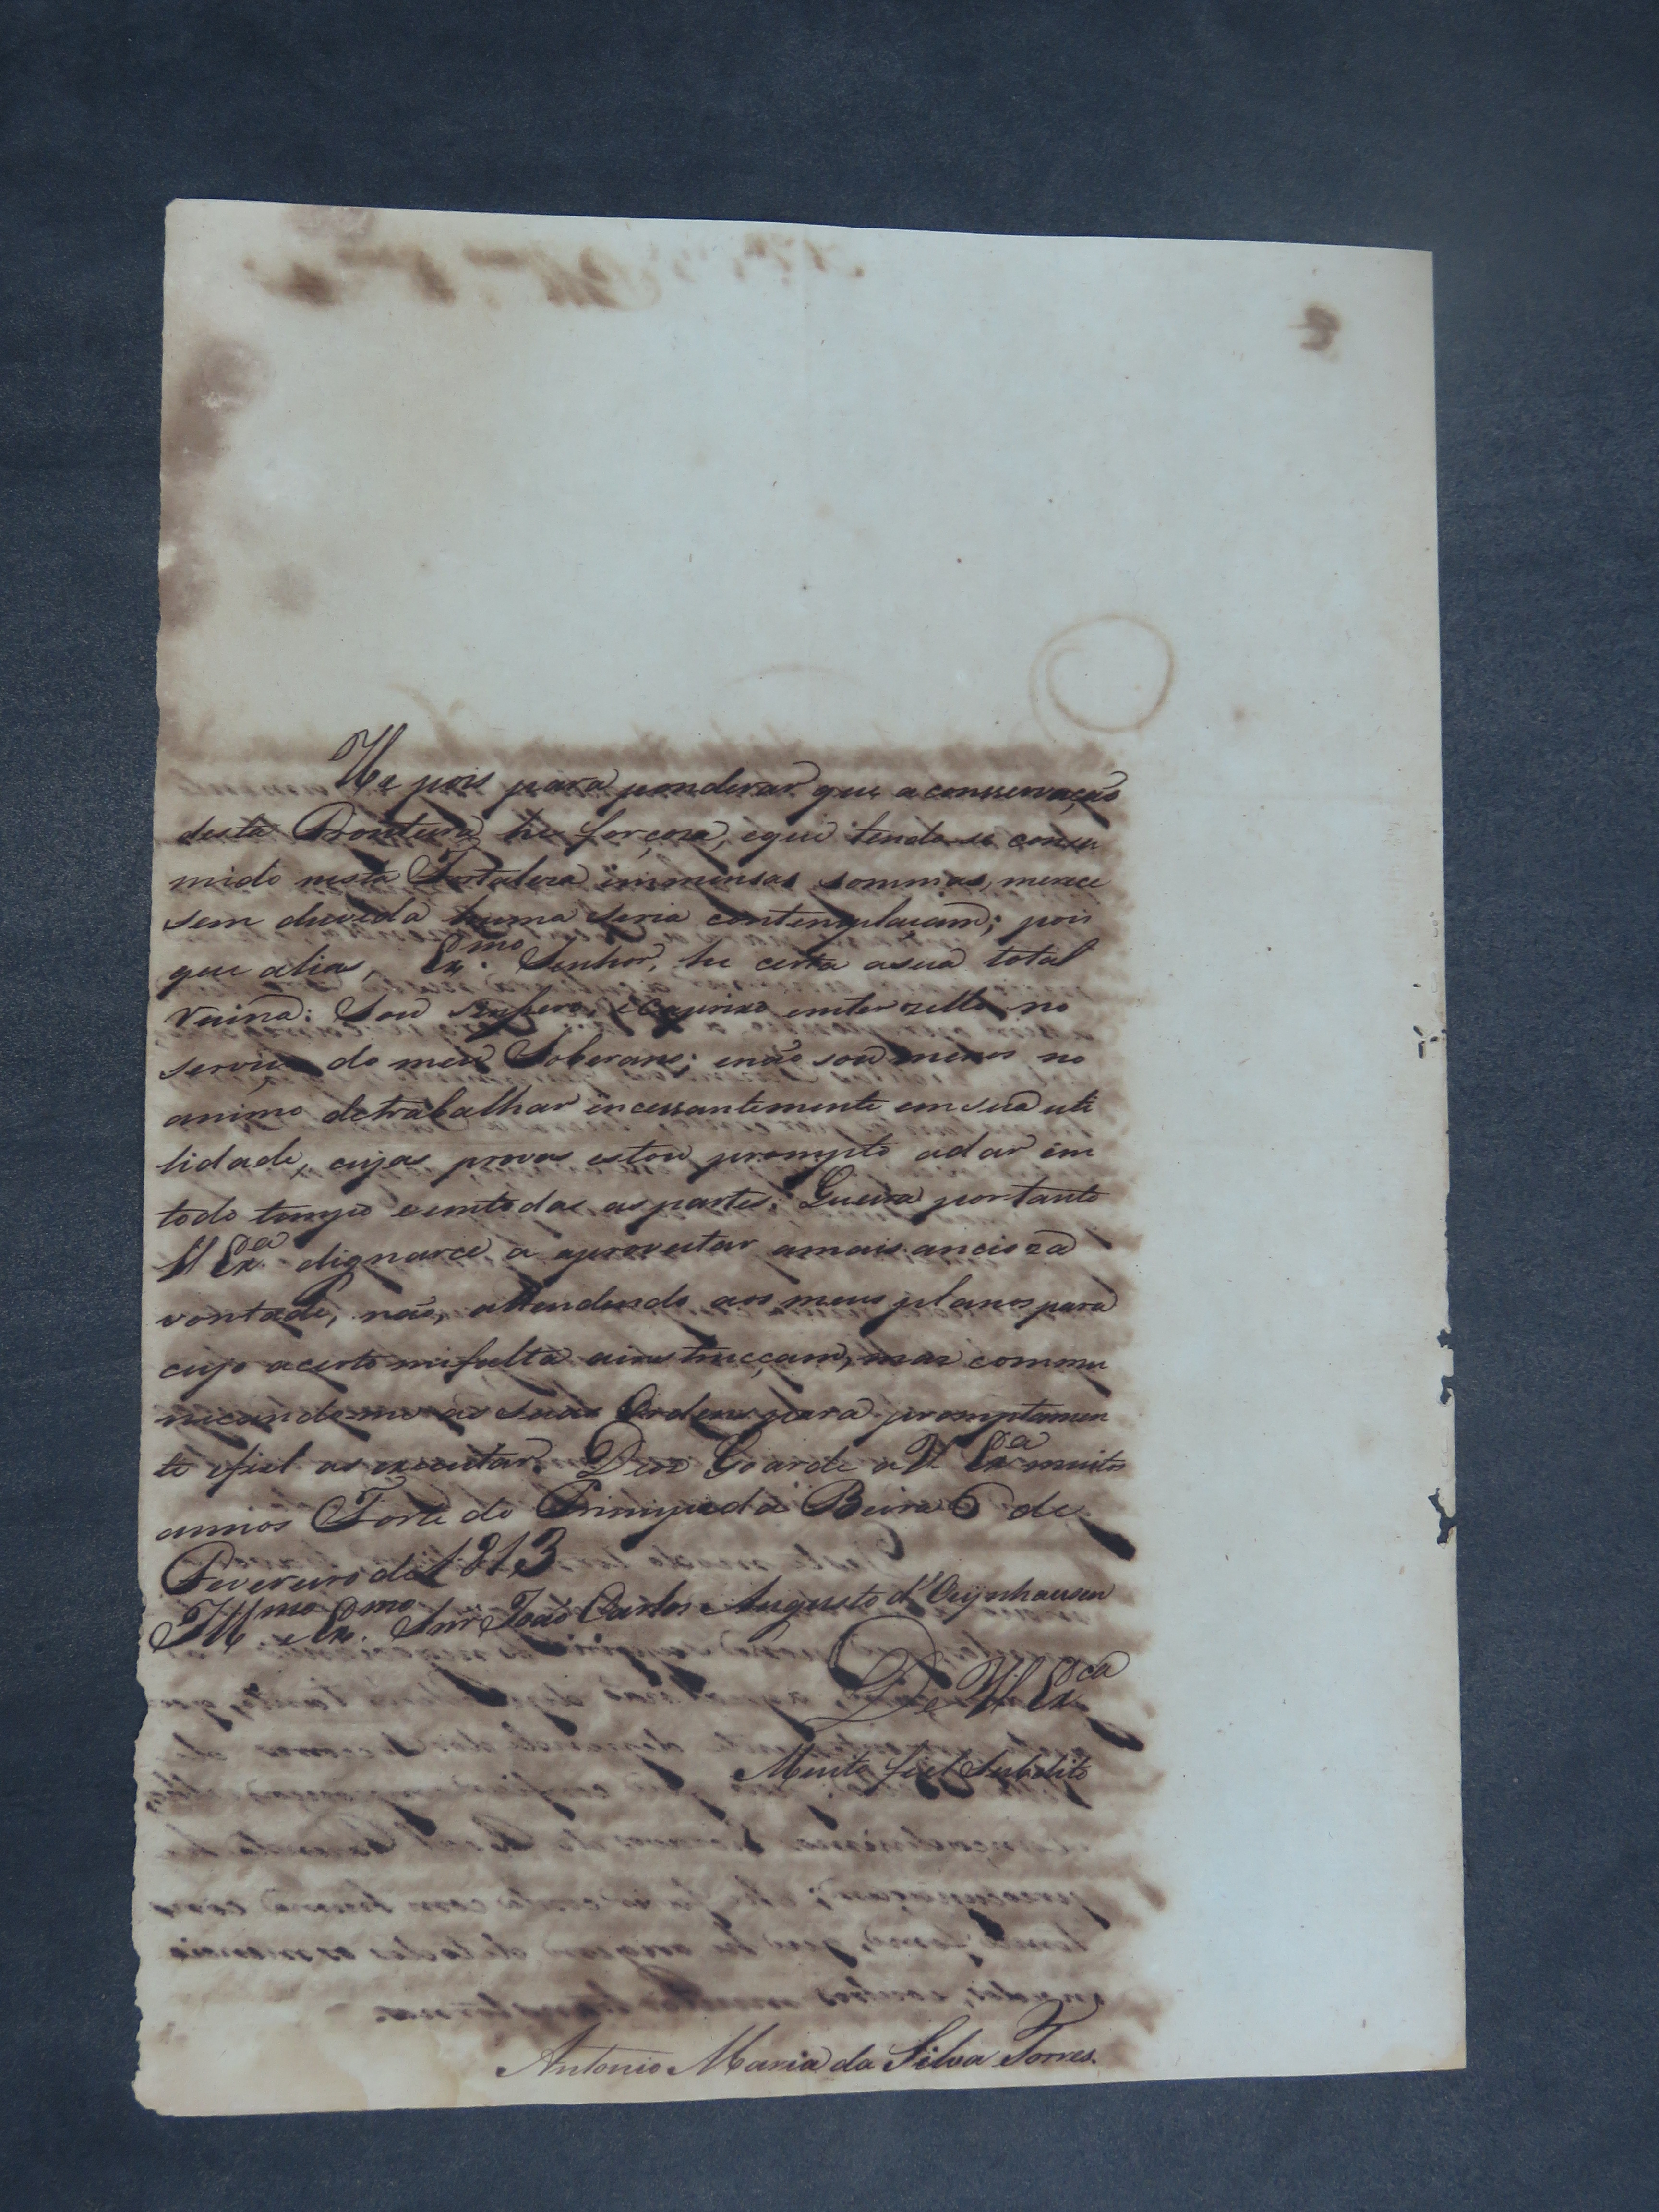 He pois para ponderar que a conservação
desta Fronteira he forçoza, eque tendo-se consu
mido nesta Fortaleza immensas sommas, merece
sem duvida huma seria contemplaçam; pois
que alias, Ex.mo Senhor, he certa asua total
ruina: Sou sincero, ecaprixo emter zello no
serviço do meu Soberano; enão sou menos no
animo detrabalhar incessantemente em sua uti
lidade, cujas provas estou prompto adar em
todo tempo eemtodas as partes: Queira portanto
V Ex.a dignarce a aproveitar amais ancioza
vontade, não, attendendo aos meus planos para
cujo acerto mefalta ainstrucçam, mas commu
nicando-me as suas Ordens para promptamen
te efiel as executar. Deos Goarde a V Ex.a muitos
annos Forte do Principe da Beira 6 de
Fevereiro de 1813
Ill.mo e Ex.mo Snr João Carlos Augusto d'Oeynhausen
De V. Ex.ca
Muito fiel Subdito
Antonio Maria da Silva Torres.